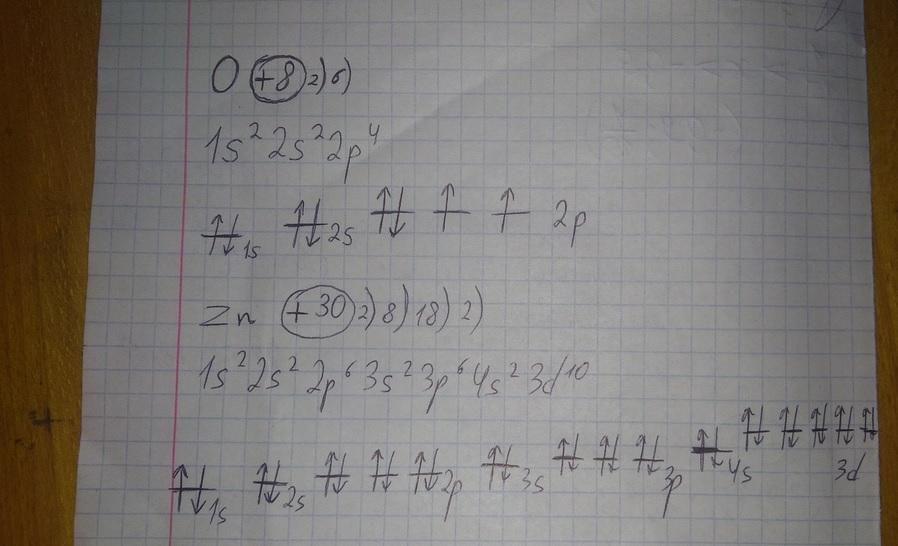 O +8 2) 6)
1s² 2s² 2p⁴
↑↓ 1s ↑↓ 2s ↑↓ ↑ ↑ 2p
Zn +30 2) 8) 18) 2)
1s² 2s² 2p⁶ 3s² 3p⁶ 4s² 3d¹⁰
↑↓ 1s ↑↓ 2s ↑↓ ↑↓ ↑↓ 2p ↑↓ 3s ↑↓ ↑↓ ↑↓ 3p ↑↓ 4s ↑↓ ↑↓ ↑↓ ↑↓ ↑↓ 3d